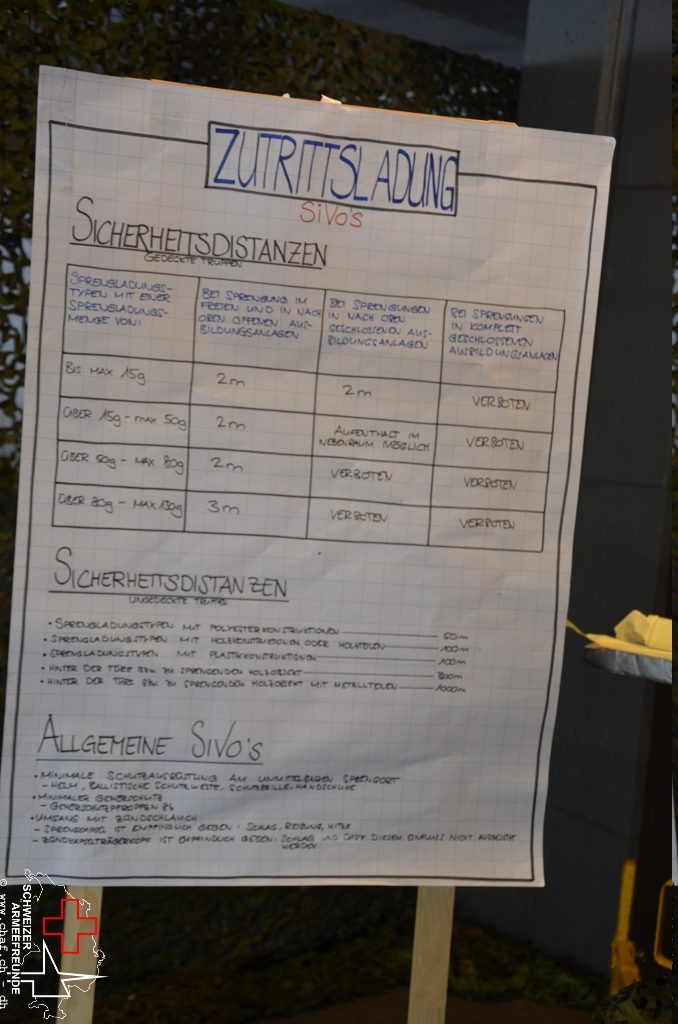 ZUTRITTSLADUNG
SiVo's
SICHERHEITSDISTANZEN
GEDECKTE TRUPPEN
SPRENGLADUNGS-
TYPEN MIT EINER
SPRENGLADUNGS-
MENGE VON:
BEI SPRENGUNG IM
FREIEN UND IN NACH
OBEN OFFENEN AUS-
BILDUNGSANLAGEN
BEI SPRENGUNGEN
IN NACH OBEN
GESCHLOSSENEN AUS-
BILDUNGSANLAGEN
BEI SPRENGUNGEN
IN KOMPLETT
GESCHLOSSENEN
AUSBILDUNGSANLAGEN
BIS MAX 15g
2m
2m
VERBOTEN
ÜBER 15g - MAX 50g
2m
AUFENTHALT IM
NEBENRAUM MÖGLICH
VERBOTEN
ÜBER 50g - MAX 80g
2m
VERBOTEN
VERBOTEN
ÜBER 80g - MAX 130g
3m
VERBOTEN
VERBOTEN
SICHERHEITSDISTANZEN
UNGEDECKTE TRUPPEN
• SPRENGLADUNGSTYPEN MIT POLYESTERKONSTRUKTIONEN 50m
• SPRENGLADUNGSTYPEN MIT HOLZKONSTRUKTIONEN ODER HOLZTEILEN 100m
• SPRENGLADUNGSTYPEN MIT PLASTIKKONSTRUKTIONEN 100m
• HINTER DER TÜRE BZW. ZU SPRENGENDEN HOLZOBJEKT 300m
• HINTER DER TÜRE BZW. ZU SPRENGENDEN HOLZOBJEKT MIT METALLTEILEN 1000m
ALLGEMEINE SiVo's
• MINIMALE SCHUTZAUSRÜSTUNG AM UNMITTELBAREN SPRENGORT
- HELM, BALLISTISCHE SCHUTZWESTE, SCHUTZBRILLE, HANDSCHUHE
• MINIMALER GEHÖRSCHUTZ
- GEHÖRSCHUTZPFROPFEN 86
• UMGANG MIT ZÜNDSCHLAUCH
- SPRENGKAPSEL IST EMPFINDLICH GEGEN: SCHLAG, REIBUNG, HITZE
- ZÜNDKAPSELTRÄGERKOPF IST EMPFINDLICH GEGEN: SCHLAG UND DARF DIESEM EINFLUSS NICHT AUSGESETZT
WERDEN
SCHWEIZER
ARMEEFREUNDE
© www.chaf.ch - dh